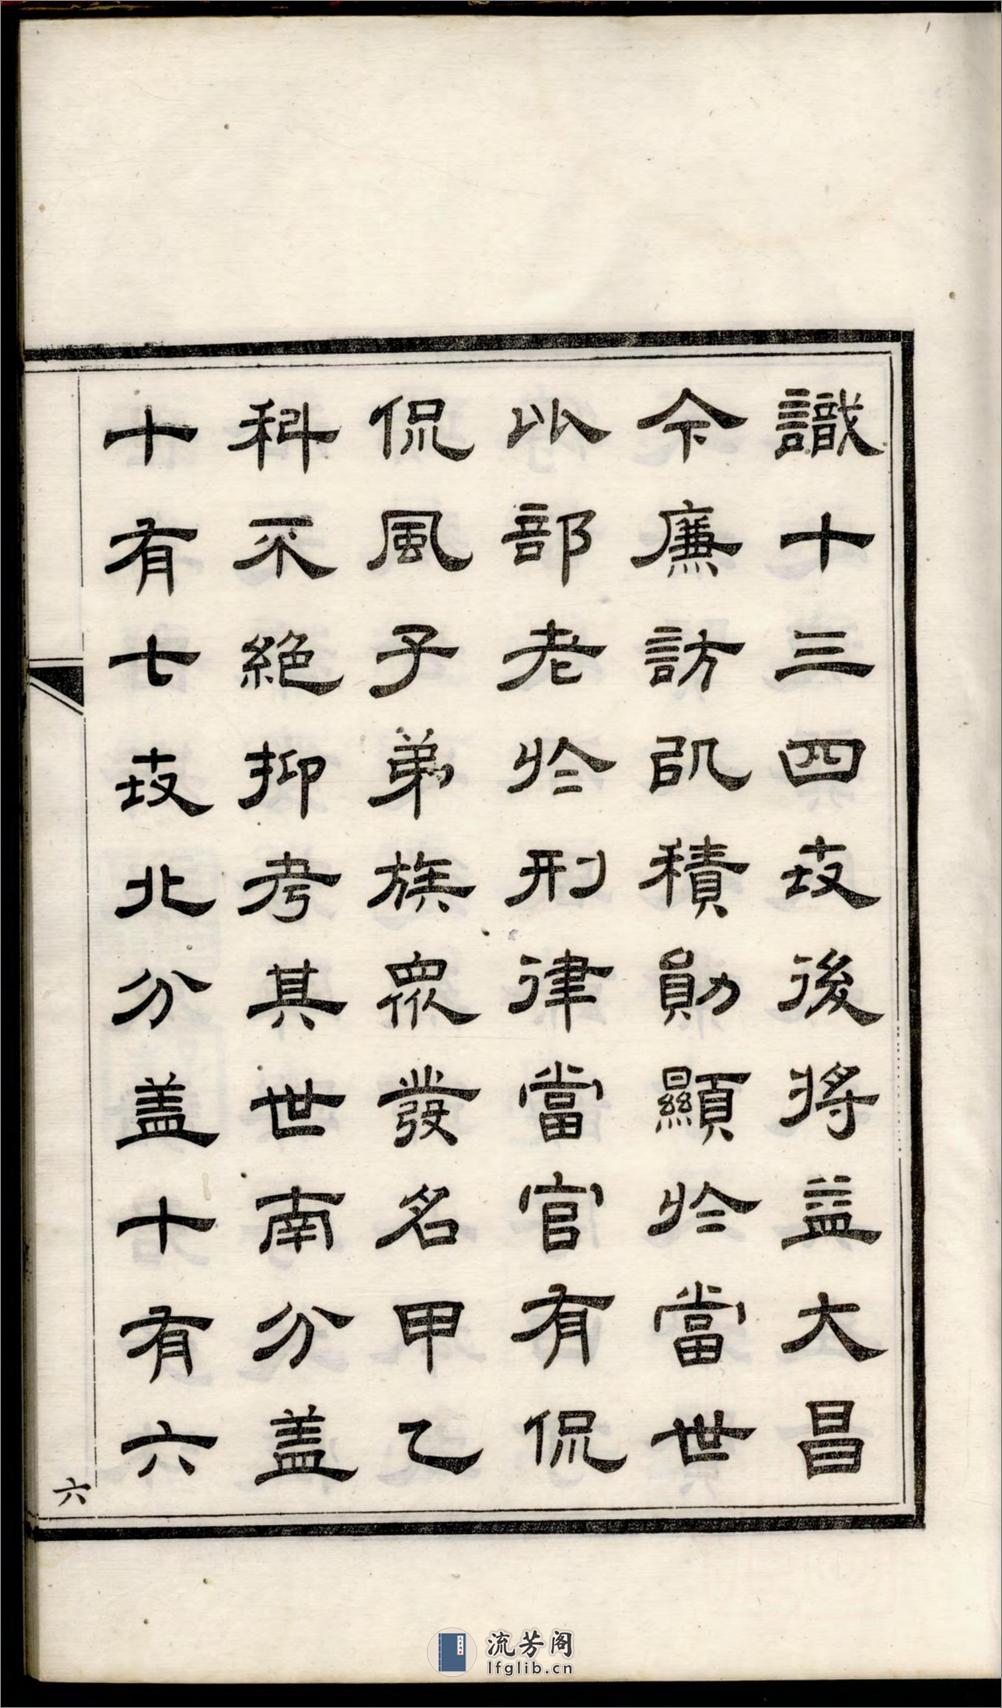 識十三四世後將益大昌
今廉訪凯積勛顯於當世
以部老於刑律當官有侃
侃風子弟族眾發名甲乙
科不絕抑考其世南分盖
十有七世北分盖十有六
六
流芳阁
lfglib.cn